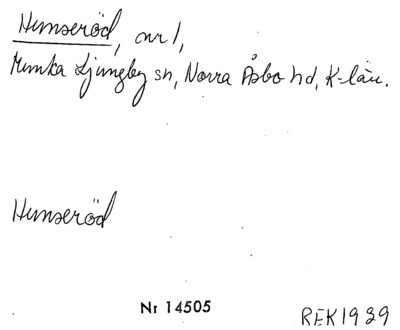 Hunseröd, nr 1,
Munka Ljungby sn, Norra Åsbo hd, K-län.
Hunseröd
Nr 14505
REK1939